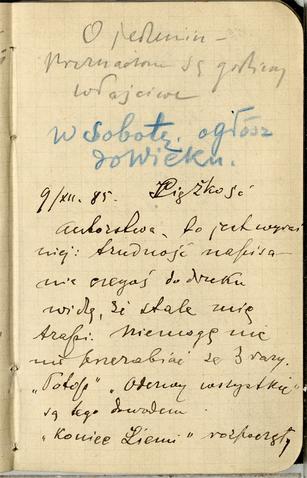 O jedenin-
Przeznaczone są godziny
właściwe
w sobotę. ogłosz
do wieku.
9/XII. 85. Ciężkość
autorstwa, to jest wyraź
niej: trudność napisa-
nia czegoś do druku
widzę, że stale mię
trapi. Niemogę nic
nie przerabiać ze 3 razy.
„Potop" „Odezwy wszystkie"
są tego dowodem
„Koniec Ziemi" rozpoczęty